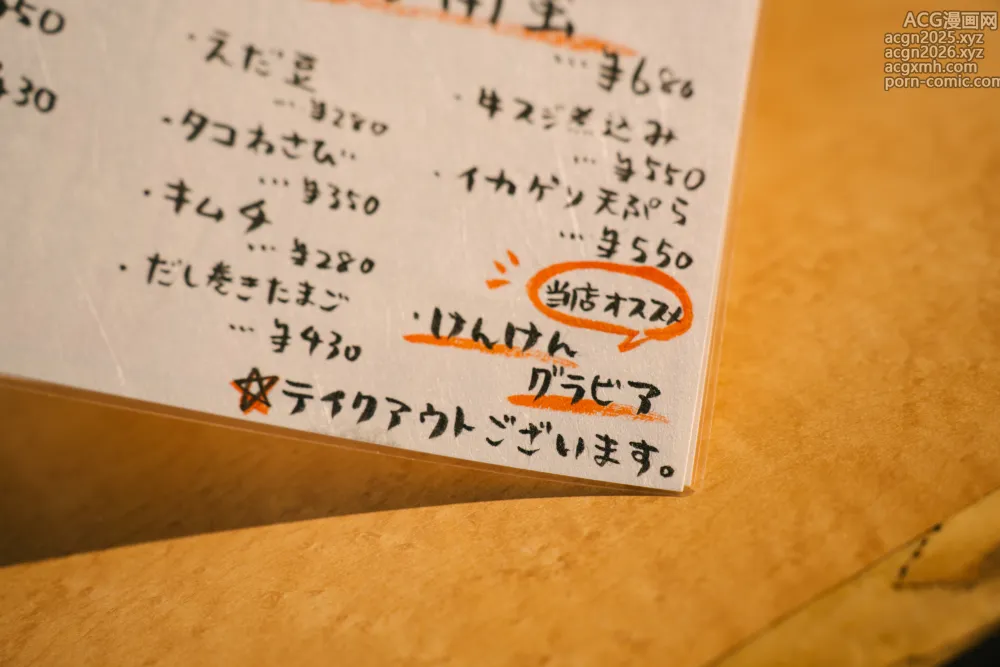 430
・えだ豆
… ¥280
・タコわさび
… ¥350
・キムチ
… ¥280
・だし巻きたまご
… ¥430
… ¥680
・牛スジ煮込み
… ¥550
・イカゲソ天ぷら
… ¥550
当店オススメ
・けんけん
グラビア
☆テイクアウトございます。
ACG漫画网
acgn2025.xyz
acgn2026.xyz
acgxmh.com
porn-comic.com